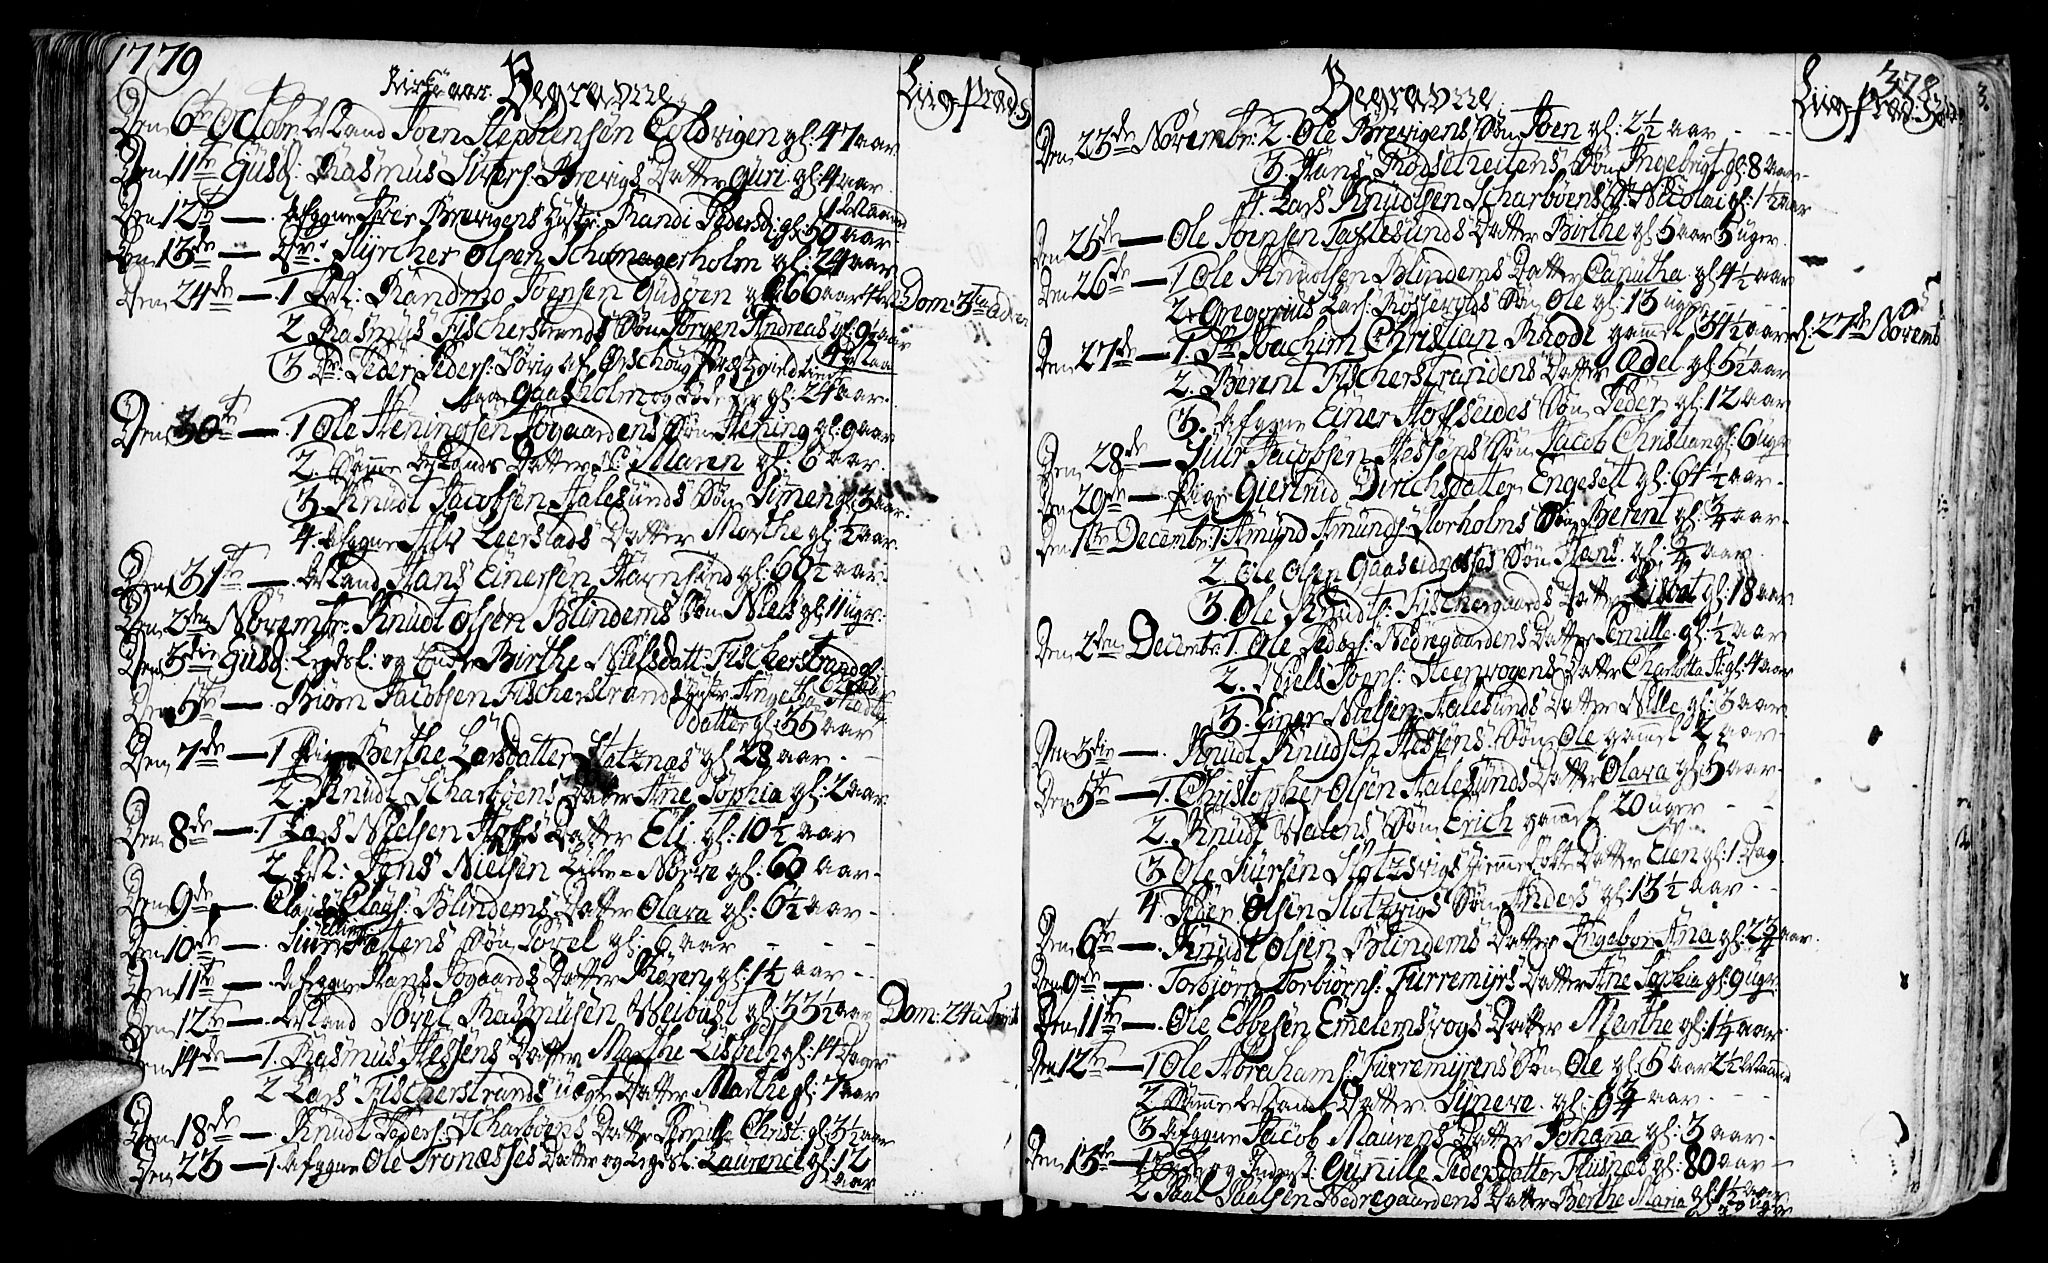 1779
Kirke aar. Begravne
Liig-Præd:
Den 6te Octobr: Mand Joen Stephensen Coldvigen gl: 47 aar.
Den 11te Gusd: Rasmus Sivers: Brevigs Datter Guri gl: 4 aar.
Den 12te — Afggne Iver Brevigens Hustr: Randi Pedersd: gl: 50 aar
Den 13de — Styrcher Olsen Schomagerholm gl: 24 aar
Den 24de — 1 Randmo Joensen Gudøen gl: 66 aar
Dom: 3tia adven
2 Rasmus Fischerstrands Søn Jørgen Andreas gl: 9½ aar
3 Peder Peders: Løvig
paa Gaasholm og døde der gl: 24 aar.
Den 30te — 1 Ole Heningsen Søgaardens Søn Hening gl: 9 aar
2. Samme Mands Datter Maren gl: 6 aar.
3. Knudt Jacobsen Aalesunds Søn Simen gl: 3 aar.
4. Afggne Leerstads Datter Marthe gl: ½ aar.
Den 31te — Mand Hans Einersen Havnsund gl: 60½ aar
Den 2den Novembr: Knudt Olsen Blindems Søn Niels gl: 11 uger:
Den 3die Gusd: Legdsl: og Enke Birthe Nielsdatt: Fischerstrand gl:
Den 5te — Biørn Jacobsen Fischerstrands Hustr:
datter gl: 35 aar
Den 7de — 1 Pige Berthe Larsdatter Slotznæs gl 28 aar.
2. Knudt Scharbøens Datter Ane Sophia gl: 2 aar.
Den 8de — 1 Lars Nielsen Hofs Datter Eli gl: 10½ aar
2 Jens Nielsen Lille-Nørve gl: 60 aar-
Den 9de — Claus Claus: Blindems Datter Olava gl: 6½ aar
Den 10de — Søn Søvel gl: 6 aar
Den 11te — Afggne Hans Søgaards Datter Karen gl: 1½ aar
Den 12te — Mand Søvel Rasmusen Weibust gl: 33½ aar
Dom: 24 a Trinit
Den 14de — 1. Rasmus Hessens Datter Marthe Lisbeth gl: 14 Dage
2 Lars Fischerstrands uægte Datter Marthe gl: 7 aar
Den 18de — Knudt Peders: Scharbøens Datter Pernille Christ: gl: 3½ aar
Den 23 — 1. Afggne Ole Tronæsses Datter og Legdsl: Laurence gl: 12
aar
378
Begravne
Liig-Præd:
Den 23de Novembr: 2. Ole Brevigens Søn Joen gl: 2½ aar
3. Hans Rødsetreitens Søn Ingebrigt gl: 8 aar
4. Lars Knudtsen Scharbøens S: Nicolai gl: 1½ aar
Den 25de — Ole Joensen Taflesunds Datter Birthe gl 5 aar 5 uger
Den 26de — 1 Ole Knudtsen Blindems Datter Canutha gl: 4½ aar
2. Gregorius Lars: Rødsevolds Søn Ole gl: 13 uger
Den 27de — 1. Joachim Christian Rhode gammel 34½ aar
d: 27de Novemb
2. Berent Fischerstrandens Datter Ædel gl: 5½ aar
3. Afggne Einer Hofseides Søn Peder gl: 12 aar
Den 28de — Siur Jacobsen Hessens Søn Jacob Christian gl: 6 uger
Den 29de — Pige Giertrud Dirichsdatter Engeset gl: 64½ aar.
Den 1te Decembr: 1 Amund Amunds: Storholms Søn Berent gl: ¾ aar
2. Ole Olsen Gaaseidnæsses Søn Hans gl: ¾ aar.
3. Ole Knudts: Fischergaards Datter Lisbet gl: 18 aar
Den 2den Decembr: 1. Ole Peders: Nedregaardens Datter Pernille gl: ½ aar
2. Niels Joens: Steenvogens Datter Charlotta A: gl: 4 aar
3. Einer Nielsen Aalesunds Datter Nille gl: 3 aar
Den 3die — Knudt Knudsen Hessens Søn Ole gamel 2 aar
Den 5te — 1. Christopher Olsen Aalesunds Datter Olava gl: 5 aar-
2. Knudt Walens Søn Erich gammel 20 uger
3 Ole Siursen Slotzvigs Hiemmedøbte Datter Eien gl: 1 Dag
4 Peder Olsen Slotzvigs Søn Anders gl: 13½ aar
Den 6te — Knudt Olsen Blindems Datter Ingebor Ana gl: 2¾ aar
Den 9de — Torbiørn Torbiørns: Furremyrs Datter Ane Sophia gl: 9 uger
Den 11te — Ole Ebbesen Emelemsvogs Datter Marthe gl: 1¼ aar
Den 12te — 1 Ole Abrahams: Furremyrens Søn Ole gl: 5 aar 2½ Maaned
2 Samme Mands Datter Synneve gl: 9¾ aar
3 Afggne Jacob Maurens Datter Johana gl: 3 aar
Den 13te — 1 Enke og Inders: Gunille Pedersdatter Flisnæs gl: 80 aar
2 Paal Paalsen Nedregaardens Datter Berthe Maria gl: 1½ aar